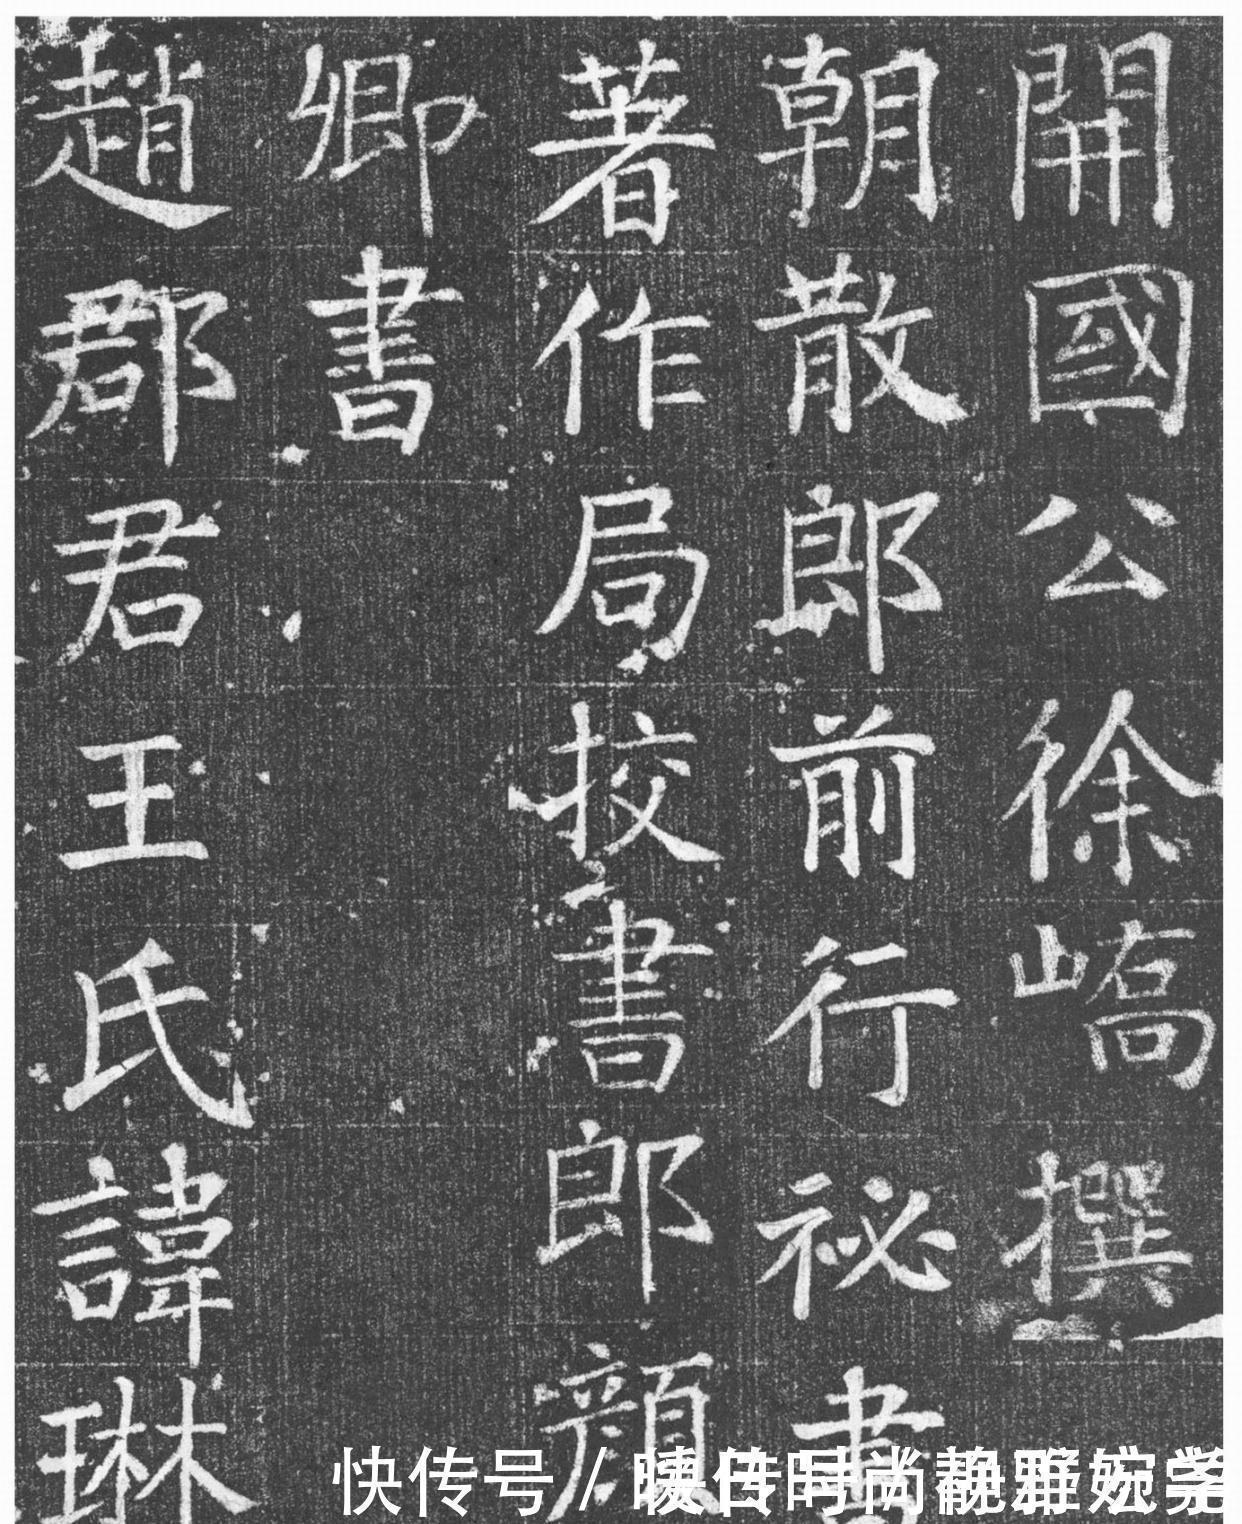 開國公徐嶠撰
朝散郎前行祕書
著作局校書郎顔
卿書
趙郡君王氏諱琳
快传号 /